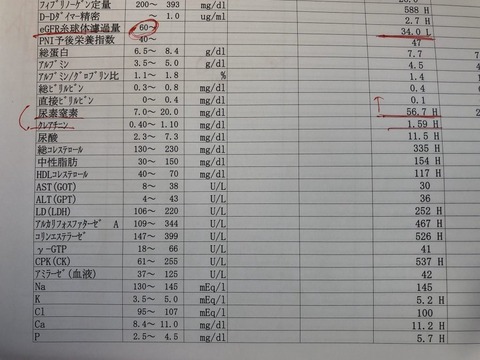 フィブリノーゲン定量 200～ 393 mg/dl
D-Dダイマー精密 ～ 1.0 ug/ml 588 H
eGFR糸球体濾過量 60～ 2.7 H
34.0 L
PNI予後栄養指数 40～ 47
総蛋白 6.5～ 8.4 g/dl 7.7
アルブミン 3.5～ 5.0 g/dl 4.5
アルブミン/グロブリン比 1.1～ 1.8 % 1.4
総ビリルビン 0.3～ 0.8 mg/dl 0.4
直接ビリルビン 0～ 0.4 mg/dl 0.1
尿素窒素 7.0～ 20.0 mg/dl 56.7 H
クレアチニン 0.40～ 1.10 mg/dl 1.59 H
尿酸 2.3～ 7.3 mg/dl 11.5 H
総コレステロール 130～ 230 mg/dl 335 H
中性脂肪 30～ 150 mg/dl 154 H
HDLコレステロール 40～ 70 mg/dl 117 H
AST(GOT) 8～ 38 U/L 30
ALT(GPT) 4～ 43 U/L 36
LD(LDH) 106～ 220 U/L 252 H
アルカリフォスファターゼ A 109～ 344 U/L 467 H
コリンエステラーゼ 147～ 399 U/L 526 H
γ-GTP 18～ 66 U/L 41
CPK(CK) 61～ 255 U/L 537 H
アミラーゼ(血液) 37～ 125 U/L 42
Na 130～ 145 mEq/l 145
K 3.5～ 5.0 mEq/l 5.2 H
Cl 95～ 107 mEq/l 100
Ca 8.4～ 11.0 mg/dl 11.2 H
P 2.5～ 4.5 mg/dl 5.7 H